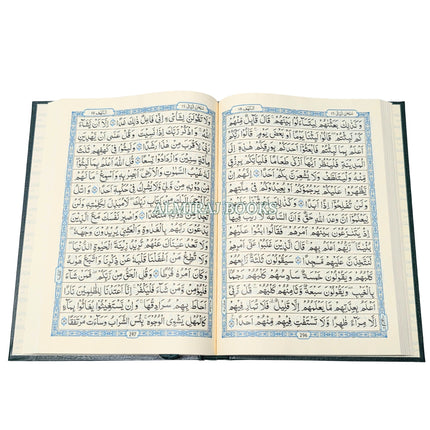 الكهف ١٨
سبحن الذى ١٥
وَكَذٰلِكَ بَعَثْنٰهُمْ لِيَتَسَآءَلُوْا بَيْنَهُمْ قَالَ قَآئِلٌ مِّنْهُمْ
كَمْ لَبِثْتُمْ قَالُوْا لَبِثْنَا يَوْمًا اَوْ بَعْضَ يَوْمٍ قَالُوْا رَبُّكُمْ
اَعْلَمُ بِمَا لَبِثْتُمْ فَابْعَثُوْٓا اَحَدَكُمْ بِوَرِقِكُمْ هٰذِهٖٓ اِلَى
الْمَدِيْنَةِ فَلْيَنْظُرْ اَيُّهَآ اَزْكٰى طَعَامًا فَلْيَاْتِكُمْ بِرِزْقٍ
مِّنْهُ وَلْيَتَلَطَّفْ وَلَا يُشْعِرَنَّ بِكُمْ اَحَدًا اِنَّهُمْ اِنْ
يَّظْهَرُوْا عَلَيْكُمْ يَرْجُمُوْكُمْ اَوْ يُعِيْدُوْكُمْ فِيْ مِلَّتِهِمْ
وَلَنْ تُفْلِحُوْٓا اِذًا اَبَدًا وَكَذٰلِكَ اَعْثَرْنَا عَلَيْهِمْ
لِيَعْلَمُوْٓا اَنَّ وَعْدَ اللّٰهِ حَقٌّ وَّاَنَّ السَّاعَةَ لَا رَيْبَ فِيْهَا
اِذْ يَتَنَازَعُوْنَ بَيْنَهُمْ اَمْرَهُمْ فَقَالُوا ابْنُوْا عَلَيْهِمْ
بُنْيَانًا رَبُّهُمْ اَعْلَمُ بِهِمْ قَالَ الَّذِيْنَ غَلَبُوْا عَلٰٓى اَمْرِهِمْ
لَنَتَّخِذَنَّ عَلَيْهِمْ مَّسْجِدًا سَيَقُوْلُوْنَ ثَلٰثَةٌ رَّابِعُهُمْ
كَلْبُهُمْ وَيَقُوْلُوْنَ خَمْسَةٌ سَادِسُهُمْ كَلْبُهُمْ رَجْمًا
بِالْغَيْبِ وَيَقُوْلُوْنَ سَبْعَةٌ وَّثَامِنُهُمْ كَلْبُهُمْ قُلْ رَّبِّيْٓ
اَعْلَمُ بِعِدَّتِهِمْ مَّا يَعْلَمُهُمْ اِلَّا قَلِيْلٌ فَلَا تُمَارِ فِيْهِمْ
اِلَّا مِرَآءً ظَاهِرًا وَّلَا تَسْتَفْتِ فِيْهِمْ مِّنْهُمْ اَحَدًا
296
سبحن الذى ١٥
الكهف ١٨
وَلَا تَقُوْلَنَّ لِشَايْءٍ اِنِّيْ فَاعِلٌ ذٰلِكَ غَدًا اِلَّآ اَنْ يَّشَآءَ
اللّٰهُ وَاذْكُرْ رَّبَّكَ اِذَا نَسِيْتَ وَقُلْ عَسٰٓى اَنْ يَّهْدِيَنِ
رَبِّيْ لِاَقْرَبَ مِنْ هٰذَا رَشَدًا وَلَبِثُوْا فِيْ كَهْفِهِمْ ثَلٰثَ
مِائَةٍ سِنِيْنَ وَازْدَادُوْا تِسْعًا قُلِ اللّٰهُ اَعْلَمُ بِمَا لَبِثُوْا
لَهٗ غَيْبُ السَّمٰوٰتِ وَالْاَرْضِ اَبْصِرْ بِهٖ وَاَسْمِعْ
مَا لَهُمْ مِّنْ دُوْنِهٖ مِنْ وَّلِيٍّ وَّلَا يُشْرِكُ فِيْ حُكْمِهٖٓ اَحَدًا
وَاتْلُ مَآ اُوْحِيَ اِلَيْكَ مِنْ كِتَابِ رَبِّكَ لَا مُبَدِّلَ لِكَلِمٰتِهٖ وَلَنْ
تَجِدَ مِنْ دُوْنِهٖ مُلْتَحَدًا وَاصْبِرْ نَفْسَكَ مَعَ الَّذِيْنَ
يَدْعُوْنَ رَبَّهُمْ بِالْغَدٰوةِ وَالْعَشِيِّ يُرِيْدُوْنَ وَجْهَهٗ
وَلَا تَعْدُ عَيْنٰكَ عَنْهُمْ تُرِيْدُ زِيْنَةَ الْحَيٰوةِ الدُّنْيَا
وَلَا تُطِعْ مَنْ اَغْفَلْنَا قَلْبَهٗ عَنْ ذِكْرِنَا وَاتَّبَعَ هَوٰىهُ
وَكَانَ اَمْرُهٗ فُرُطًا وَقُلِ الْحَقُّ مِنْ رَّبِّكُمْ فَمَنْ شَآءَ
فَلْيُؤْمِنْ وَّمَنْ شَآءَ فَلْيَكْفُرْ اِنَّآ اَعْتَدْنَا لِلظّٰلِمِيْنَ نَارًا
اَحَاطَ بِهِمْ سُرَادِقُهَا وَاِنْ يَّسْتَغِيْثُوْا يُغَاثُوْا بِمَآءٍ
كَالْمُهْلِ يَشْوِى الْوُجُوْهَ بِئْسَ الشَّرَابُ وَسَآءَتْ مُرْتَفَقًا
297